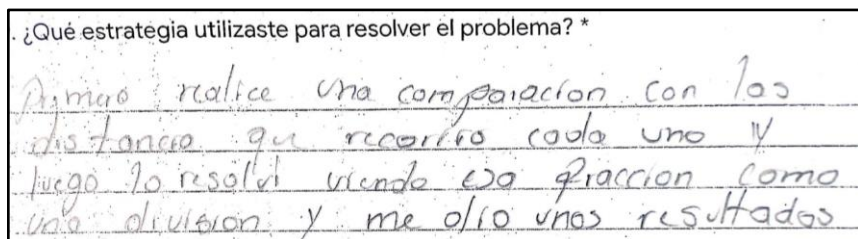 . ¿Qué estrategia utilizaste para resolver el problema? *
Primero realice una comparacion con las
distancia que recorrio cada uno y
luego lo resolvi viendo esa fraccion como
una division y me dio unos resultados